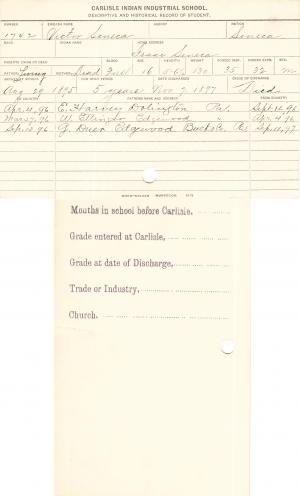 CARLISLE INDIAN INDUSTRIAL SCHOOL.
DESCRIPTIVE AND HISTORICAL RECORD OF STUDENT.
NUMBER ENGLISH NAME AGENCY NATION
1742 Victor Seneca Seneca
BAND INDIAN NAME HOME ADDRESS
Isaac Seneca
PARENTS LIVING OR DEAD BLOOD AGE HEIGHT WEIGHT SEX.
FATHER Living MOTHER Dead Full 16 130 32 m
FOR WHAT PERIOD DATE DISCHARGED CAUSE OF DISCHARGE
Aug 29, 1895 5 years Nov 7 1897 Died
TO COUNTRY PATRONS NAME AND ADDRESS FROM COUNTRY
Apr. 11, 96 E. Harvey Dolington Pa. Sept. 12, 96
Edgewood " Apr. 4, 96
Sep. 10 96 Edgewood Bucks Co. Pa.
Months in school before Carlisle,
Grade entered at Carlisle,
Grade at date of Discharge,
Trade or Industry,
Church.